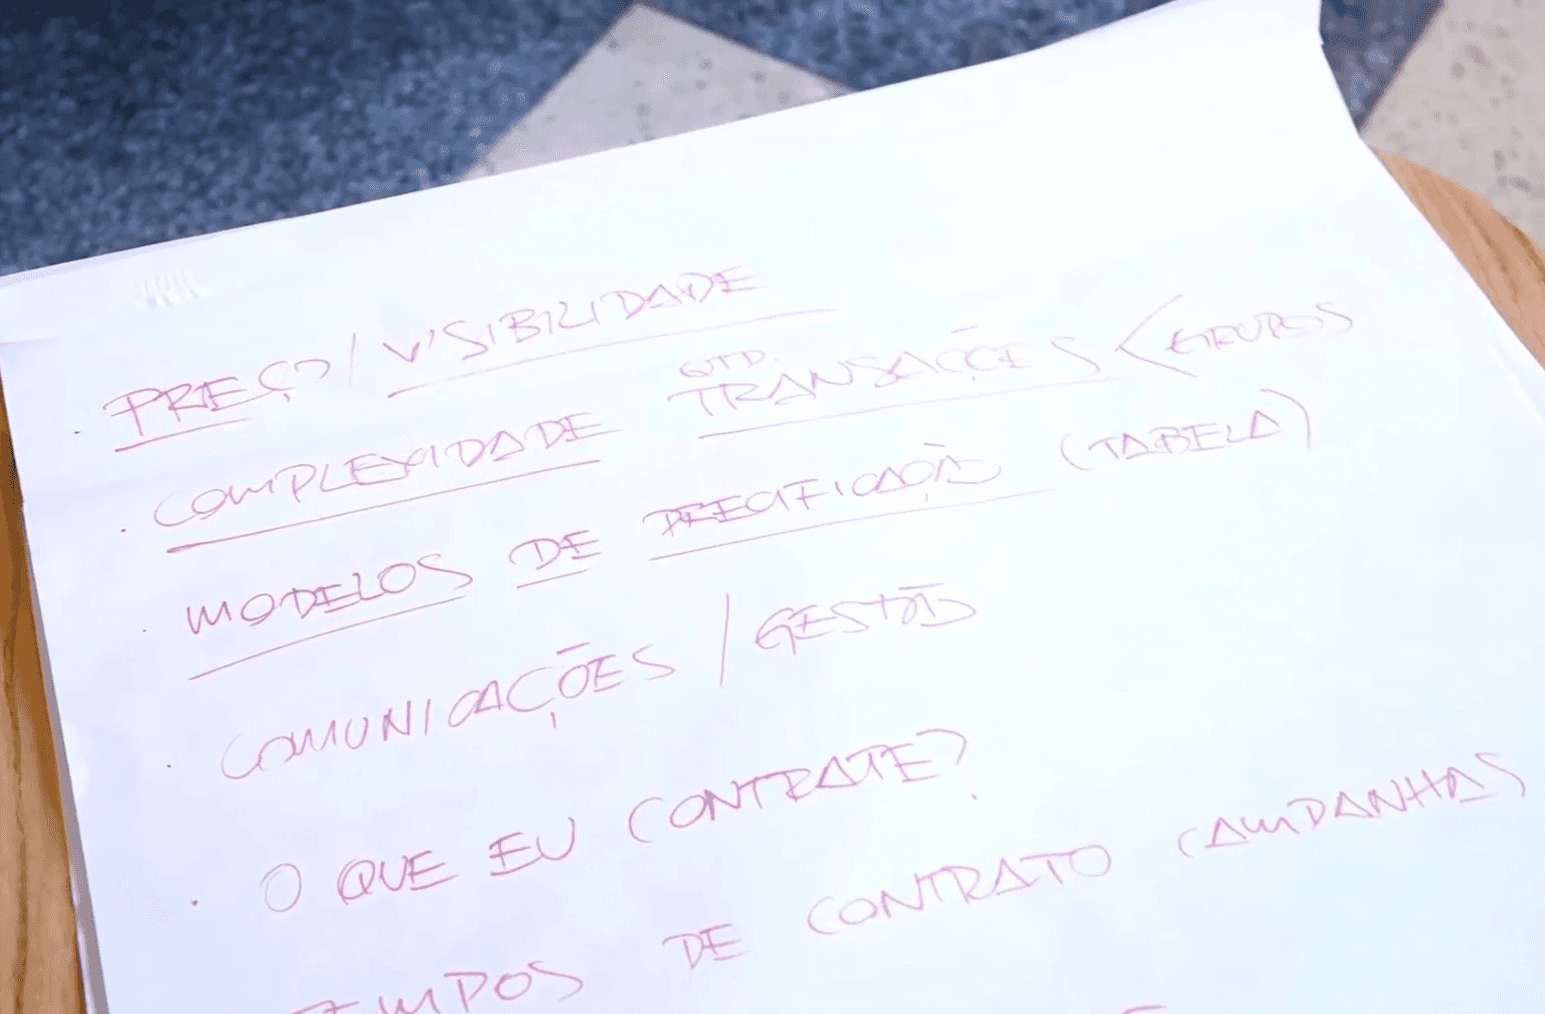 · PREÇO / VISIBILIDADE
· COMPLEXIDADE QTD. TRANSAÇÕES < GRUPOS
· MODELOS DE PRECIFICAÇÃO (TABELA)
· COMUNICAÇÕES / GESTÃO
· O QUE EU CONTRATE?
TEMPOS DE CONTRATO CAMPANHAS